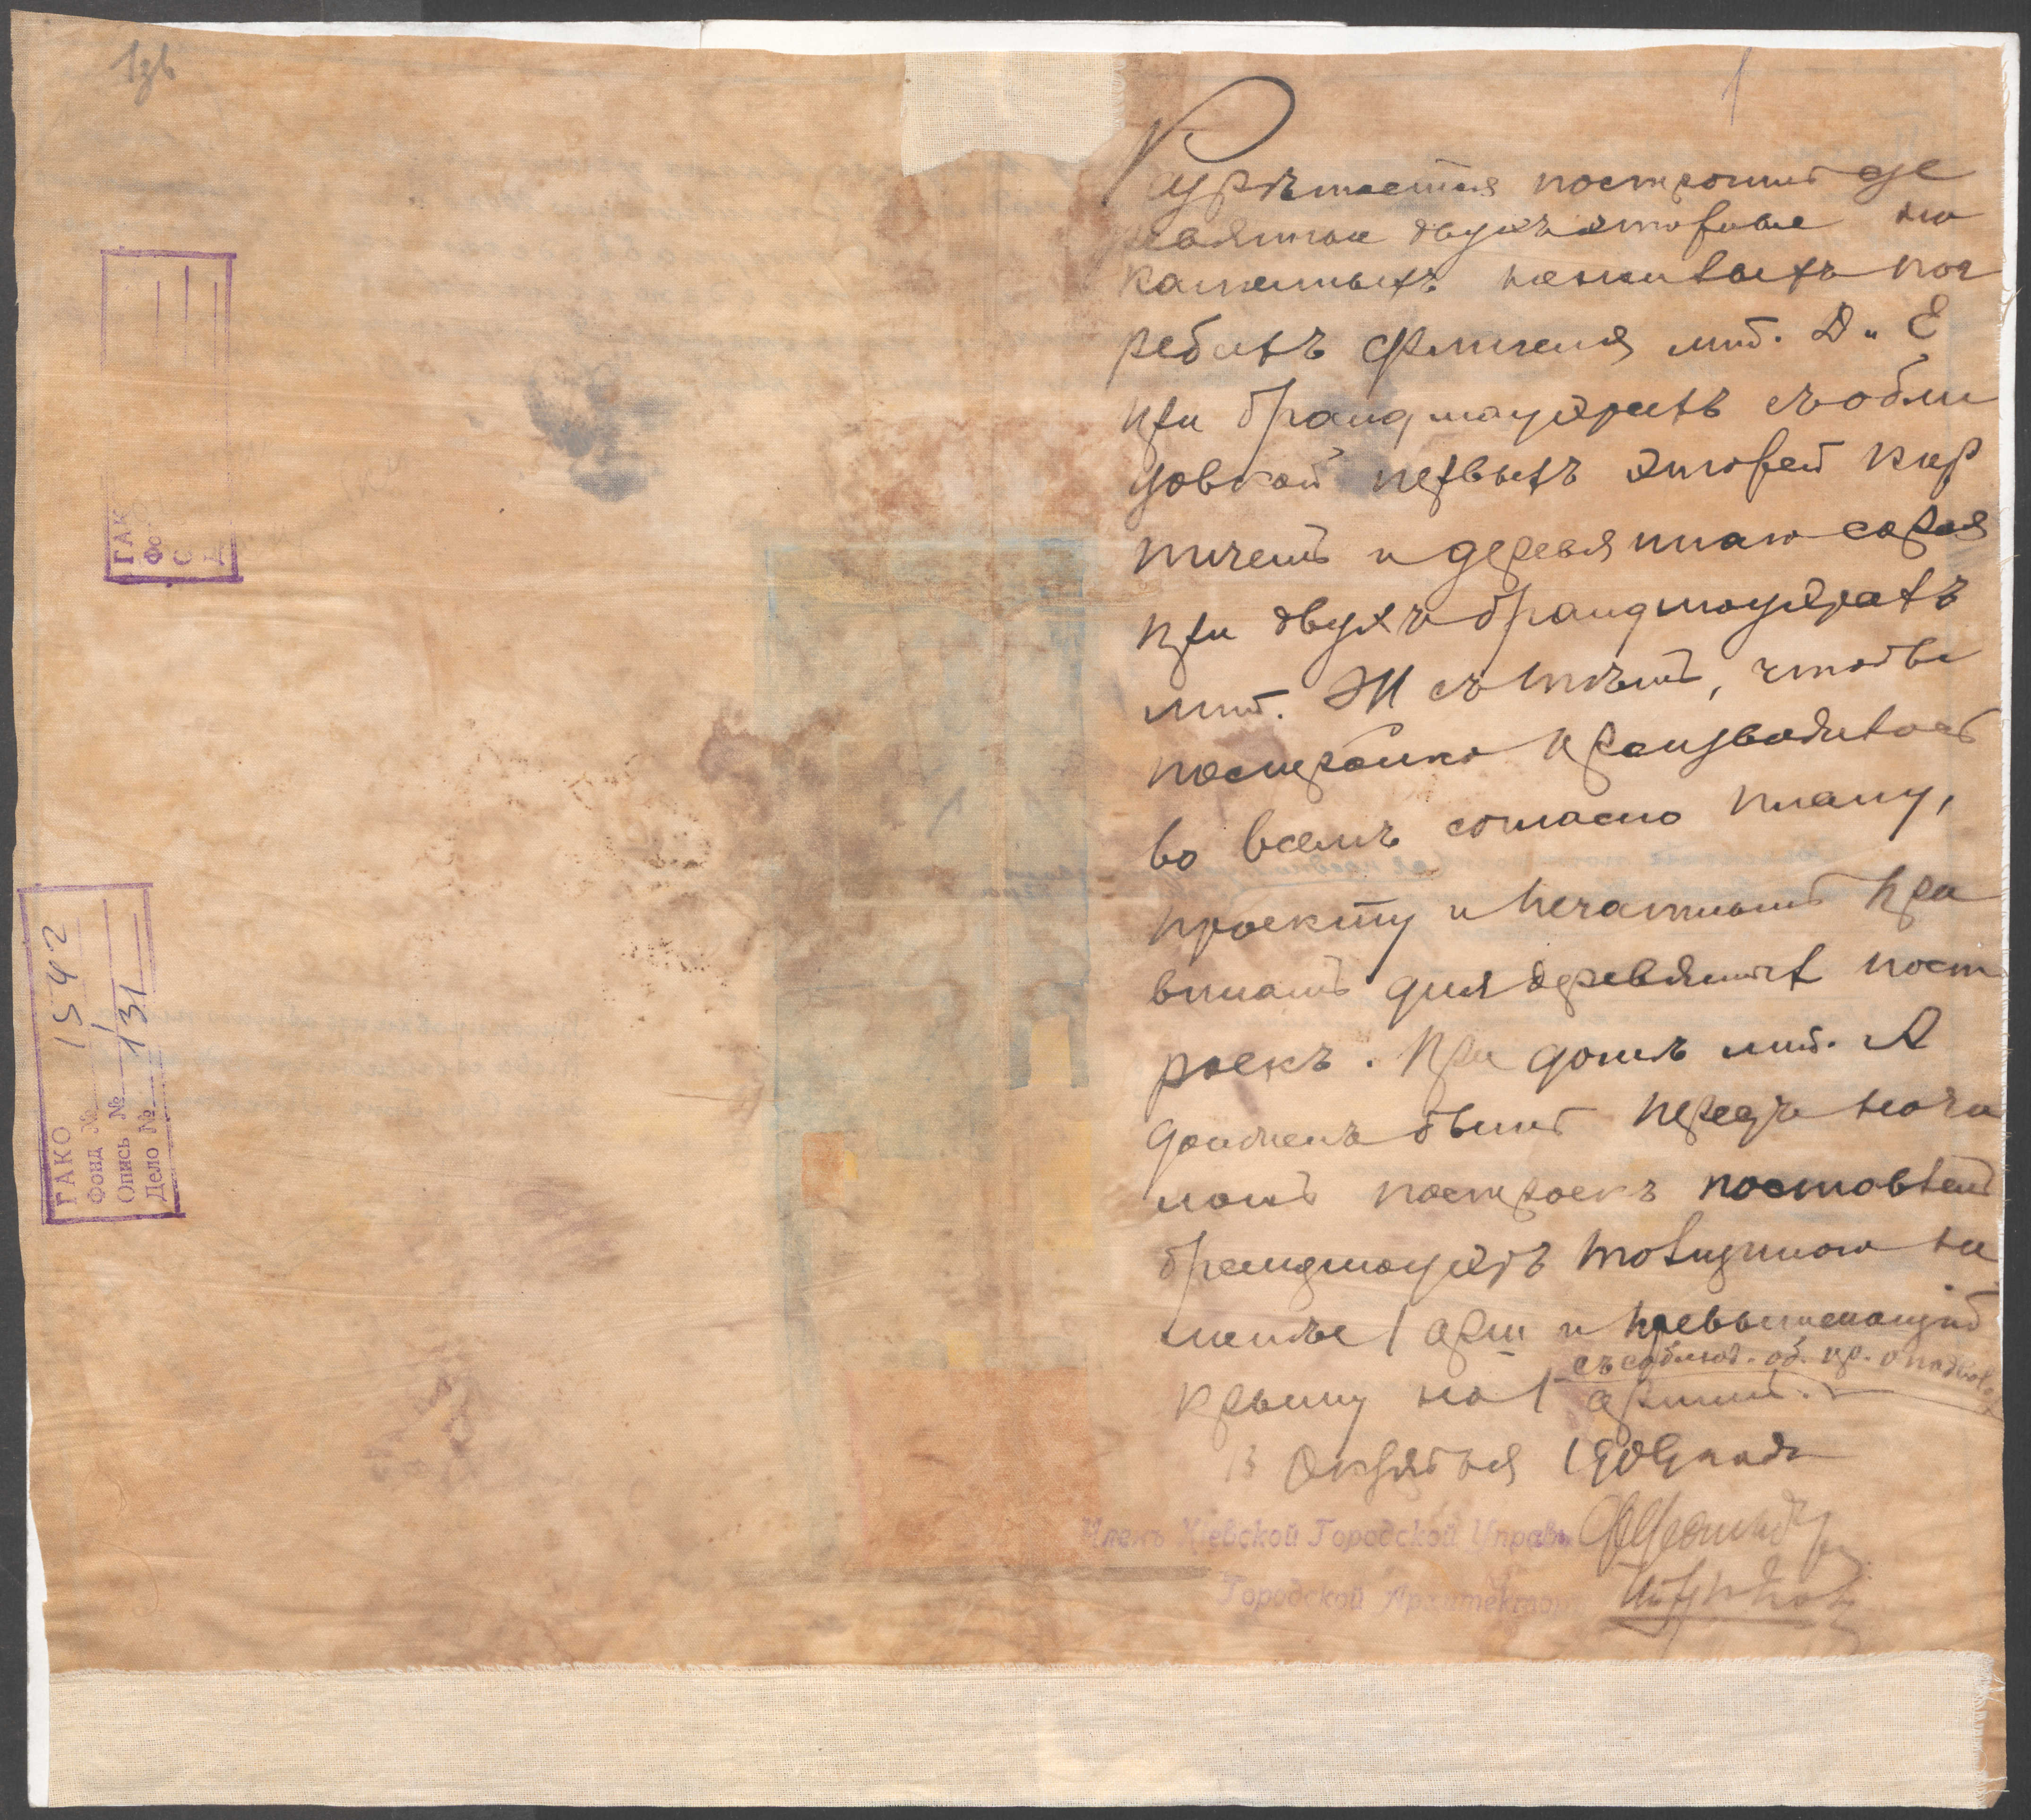 1
Разрѣшается построить де
ревянные двухъэтажные на
каменныхъ нежилыхъ пог
ребахъ флигеля лит. Д и Е
при брандмауэрахъ съ обли
цовкой первыхъ этажей кир
пичемъ и деревянная сарая
при двухъ брандмауэрахъ
лит. Ж съ тѣмъ, чтобы
постройка производилась
во всемъ согласно плану,
проекту и печатнымъ пра
виламъ для деревянныхъ пост
роекъ. При домѣ лит. А
долженъ быть передъ нача
ломъ построекъ поставленъ
брандмауэръ толщиною не
менѣе 1 арш и превышающій
съ соблюд. об. пр. о
крышу на 1 аршинъ.
13 Октября года
Членъ Кіевской Городской Управы
Городской Архитекторъ
ГАК
Фо
С
ГАКО
Фонд № 1542
Опись № 1
Дело № 131